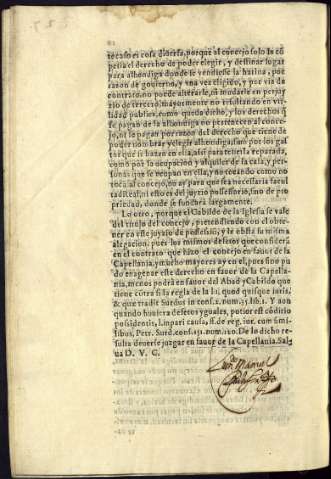 toca, o es cosa diuersa, porque al concejo solo le cõ
petia el derecho de poder elegir, y destinar lugar
para alhondiga donde se vendiesse la harina, por
razon de gouierno, y vna vez elegido, y por via de
contrato, no puede alterarlo, ni mudarlo en perjuy
zio de tercero, mayormente no resultando en vti
lidad publica, como quedo dicho, y los derechos q̃
se pagan de la alhondiga no pertenecen al conce
jo, ni lo pagan por razon del derecho que tiene de
poder nombrar y elegir alhondiga, sino por los gas
tos que se hazen en ella, assi para tenerla reparada,
como por la ocupacion y alquiler de la casa, y per-
sonas que se ocupan en ella, y no tocando como no
toca al concejo, no ay para que sea necessaria facul
tad Real, ni esto es del juyzio possessorio, sino de pro
priedad, donde se fundarà largamente.
Lo otro, porque el Cabildo de la Iglesia se vale
del titulo del concejo, pretendiendo con el obte-
ner en este juyzio de possessio, y le obsta su misma
alegacion, pues los mismos defetos que considera
en el contrato que hizo el concejo en fauor de la
Capellania, y mucho mayores ay en el, pues sino pu
do enagenar este derecho en fauor de la Capella-
nia, menos podrà en fauor del Abad y Cabildo que
tiene cõtra si la regla de la l. quod quisque iuris,
& que tradit Surdus in cons. 2. num. 25. lib. 1. Y aun
quando huuiera defetos yguales, potior est cõditio
possidentis, l. in pari causa, ff. de reg. iur. cum simi-
libus, Petr. Surd. cons. 151. num. 20. De lo dicho re-
sulta deuerse juzgar en fauor de la Capellania. Sal
ua D. V. C.